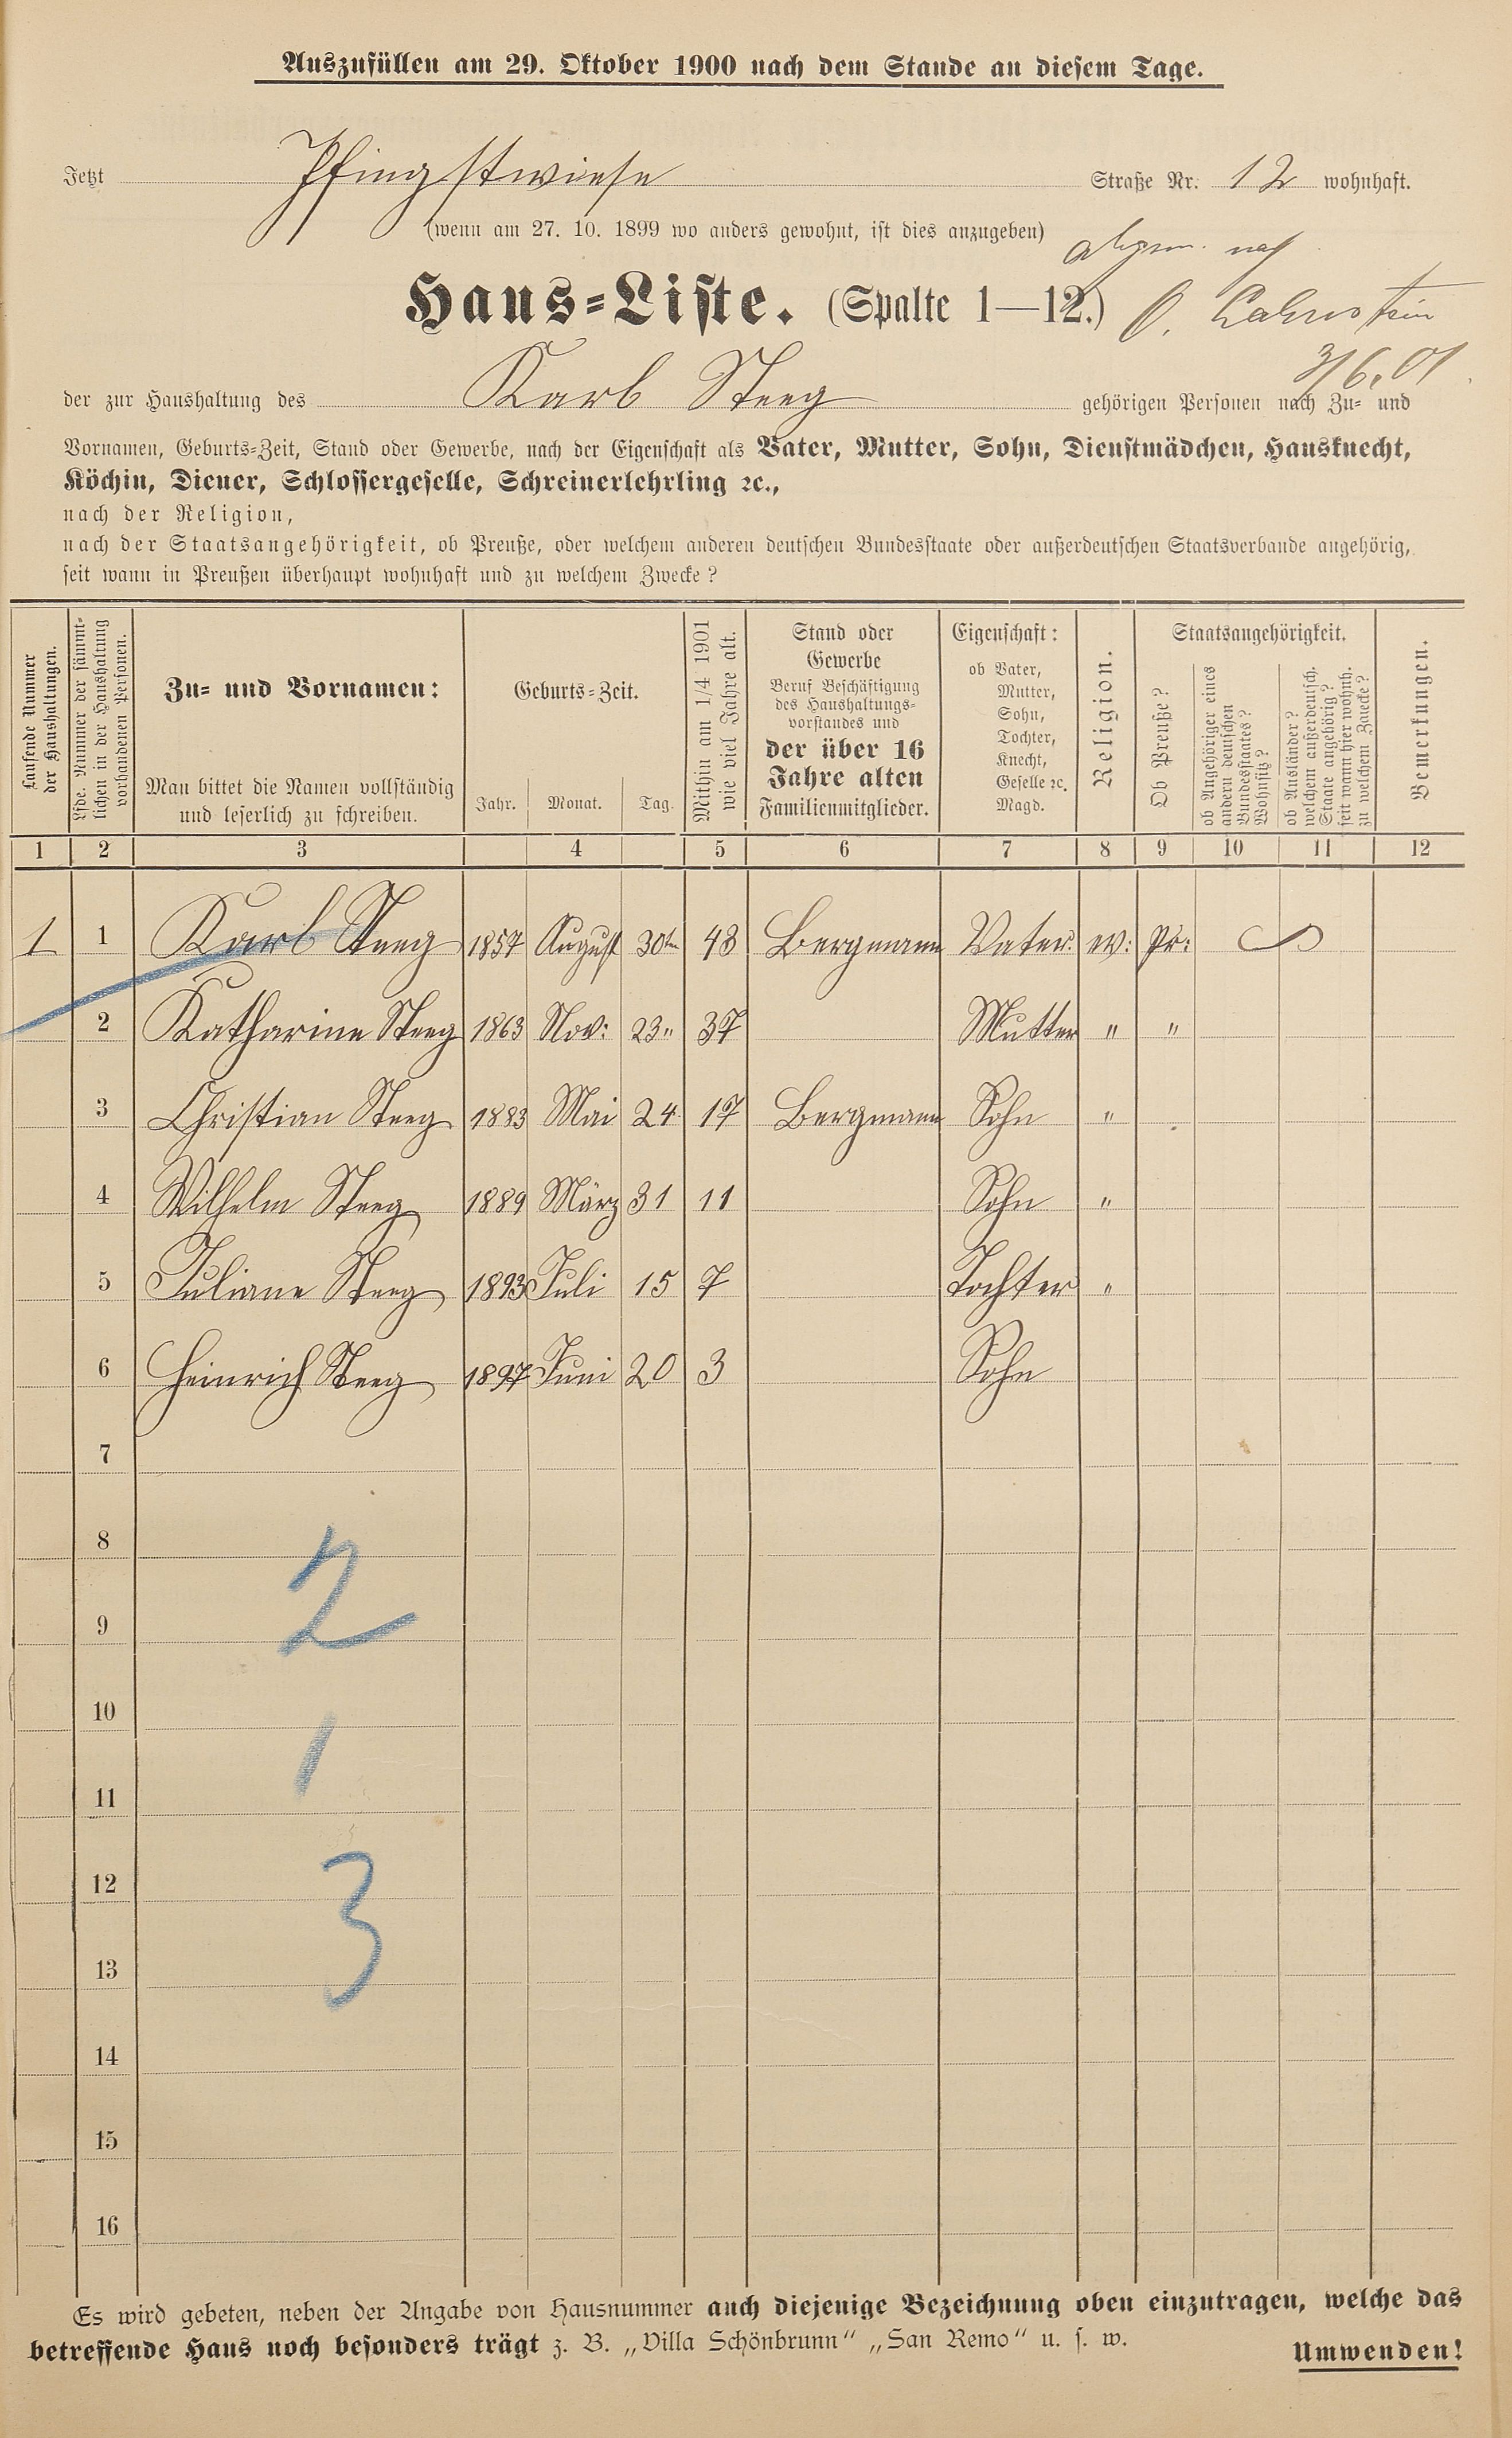 Auszufüllen am 29. Oktober 1900 nach dem Stande an diesem Tage.
Jetzt Pfingstwiese Straße Nr. 12 wohnhaft.
(wenn am 27. 10. 1899 wo anders gewohnt, ist dies anzugeben)
nach
Haus=Liste. (Spalte 1—12.) O. Lahnstein
3/6.01
der zur Haushaltung des Karl Steeg gehörigen Personen nach Zu= und
Vornamen, Geburts=Zeit, Stand oder Gewerbe, nach der Eigenschaft als Vater, Mutter, Sohn, Dienstmädchen, Hausknecht,
Köchin, Diener, Schlossergeselle, Schreinerlehrling ꝛc.,
nach der Religion,
nach der Staatsangehörigkeit, ob Preuße, oder welchem anderen deutschen Bundesstaate oder außerdeutschen Staatsverbande angehörig,
seit wann in Preußen überhaupt wohnhaft und zu welchem Zwecke?
Laufende Nummer
der Haushaltungen.
Lfde. Nummer der sämmt=
lichen in der Haushaltung
vorhandenen Personen.
Zu= und Vornamen:
Man bittet die Namen vollständig
und leserlich zu schreiben.
Geburts=Zeit.
Jahr. Monat. Tag.
Mithin am 1/4 1901
wie viel Jahre alt.
Stand oder
Gewerbe
Beruf Beschäftigung
des Haushaltungs=
vorstandes und
der über 16
Jahre alten
Familienmitglieder.
Eigenschaft:
ob Vater,
Mutter,
Sohn,
Tochter,
Knecht,
Geselle ꝛc.
Magd.
Religion.
Staatsangehörigkeit.
Ob Preuße?
ob Angehöriger eines
andern deutschen
Bundesstaates?
Wohnsitz?
ob Ausländer?
welchem außerdeutsch.
Staate angehörig?
seit wann hier wohnh.
zu welchem Zwecke?
Bemerkungen.
1 2 3 4 5 6 7 8 9 10 11 12
1 1 Karl Steeg 1857 August 30ten 43 Bergmann Vater. ev: Pr:
2 Katharine Steeg 1863 Nov: 23" 37 Mutter " "
3 Christian Steeg 1883 Mai 24 17 Bergmann Sohn "
4 Wilhelm Steeg 1889 März 31 11 Sohn "
5 Juliane Steeg 1893 Juli 15 7 Tochter "
6 Heinrich Steeg 1897 Juni 20 3 Sohn
7
8
2
9
10
1
11
12
3
13
14
15
16
Es wird gebeten, neben der Angabe von Hausnummer auch diejenige Bezeichnung oben einzutragen, welche das
betreffende Haus noch besonders trägt z. B. „Villa Schönbrunn“ „San Remo“ u. s. w.
Umwenden!